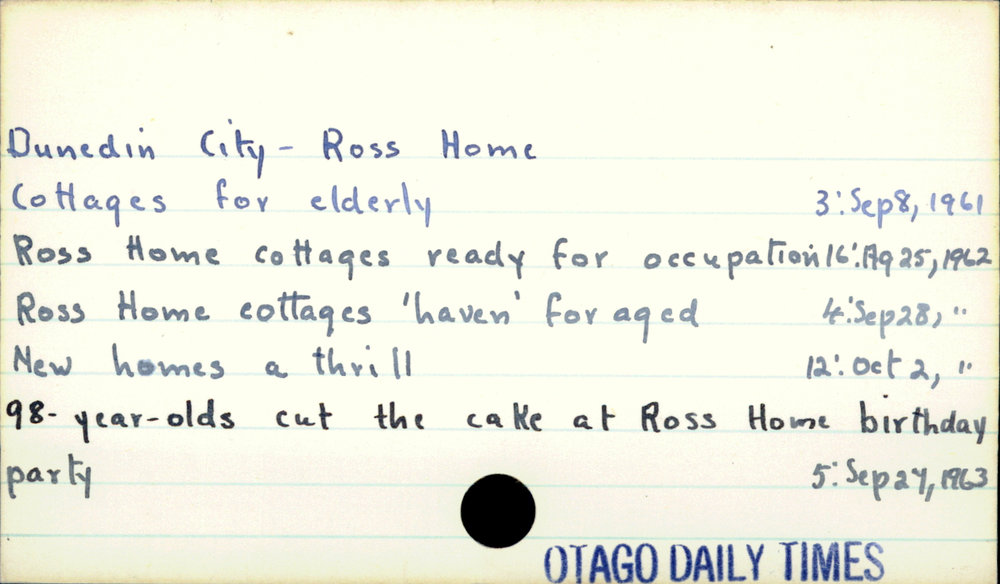 Dunedin City - Ross Home
Cottages for elderly 3:Sep8, 1961
Ross Home cottages ready for occupation 16:Ag 25, 1962
Ross Home cottages 'haven' for aged 4:Sep28, "
New homes a thrill 12: Oct 2, "
98-year-olds cut the cake at Ross Home birthday
party 5: Sep 27, 1963
OTAGO DAILY TIMES